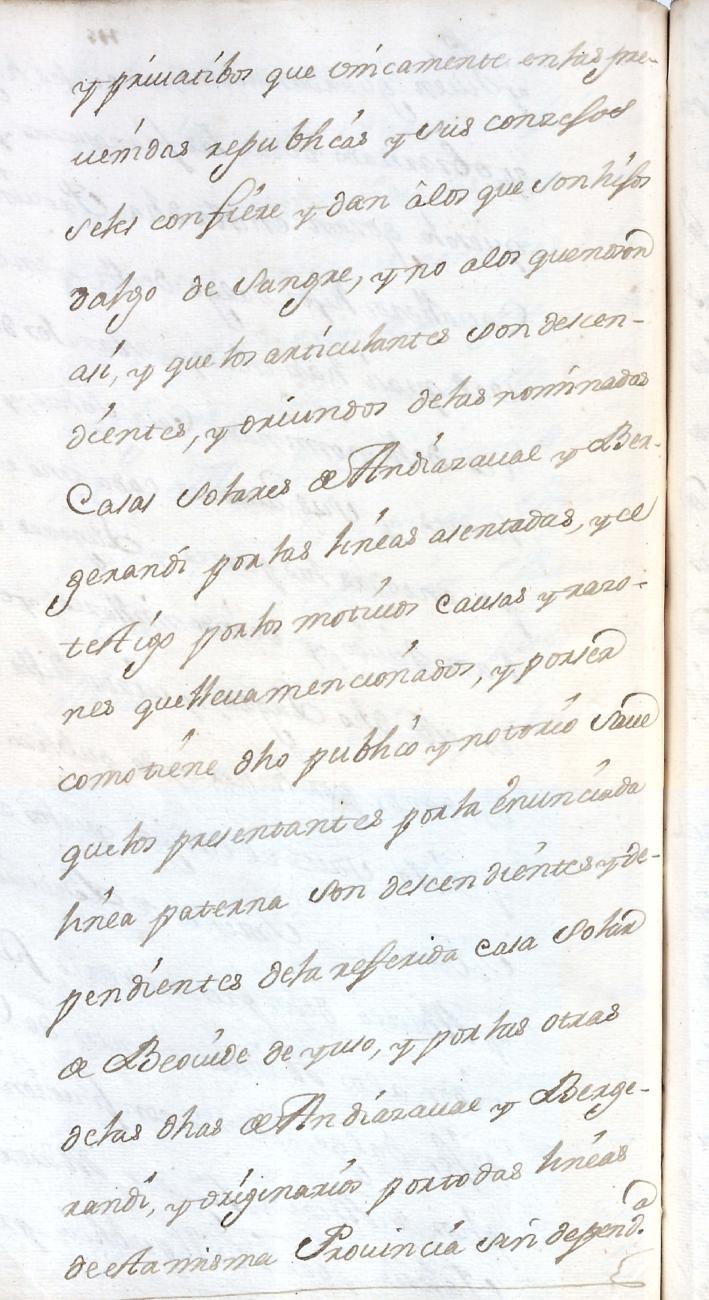 y priuatibos que vnicamente en las pre-
uenidas republicas y sus conzejos
seles confiere y dan â los que son hijos
dalgo de Sangre, y no a los que no son
asi, y que los articulantes son descen-
dientes, y oriundos de las nominadas
Casas Solares de Andiazauae y Ber-
gerandi por las lineas asentadas, y el
testigo por los motiuos causas y razo-
nes que lleua mencionados, y por ser
como tiene dho publico y notorio saue
que los presentantes por la enunciada
linea paterna son descendientes y de-
pendientes de la refferida casa solar
de Beouide de yuso, y por las otras
de las dhas de Andiazauae y Berge-
randi, y originarios por todas lineas
de esta misma Prouincia sin depend.ª